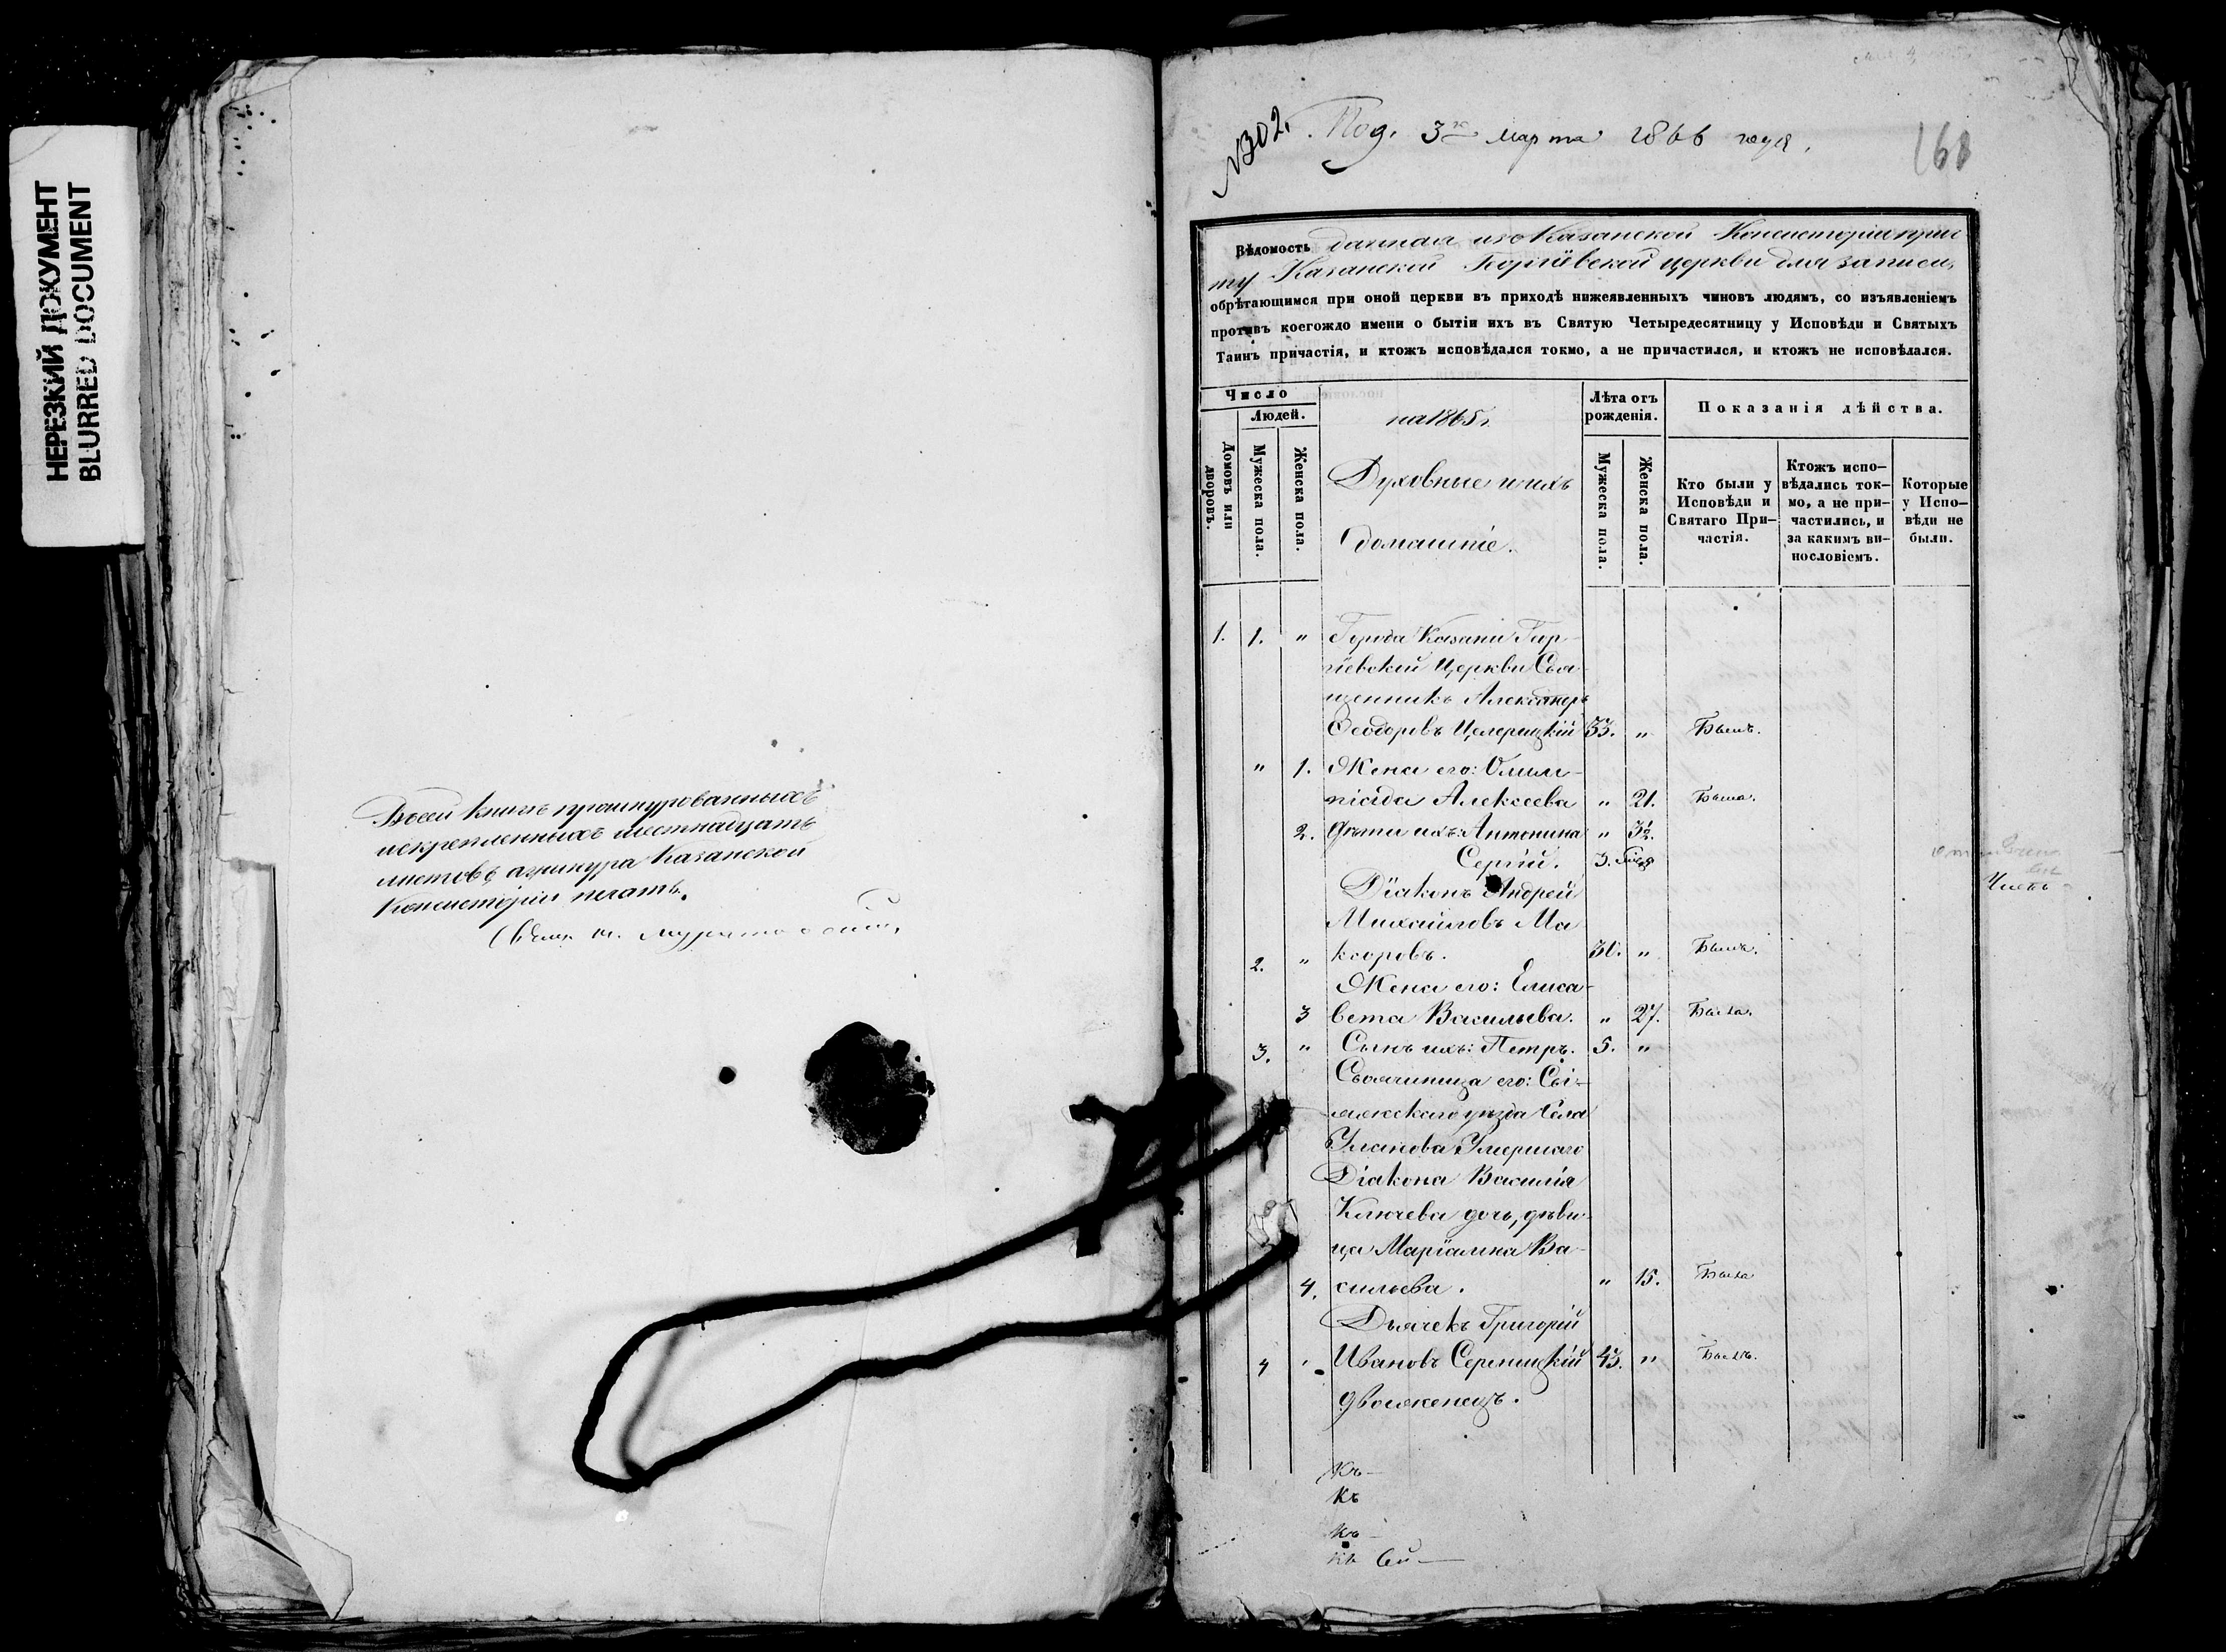 НЕРЕЗКИЙ ДОКУМЕНТ
BLURRED DOCUMENT
Въ сей книгѣ прошнурованныхъ
и скрепленныхъ шестнадцать
листовъ, а у шнура Казанской
Консисторіи печать.
№ 302. Под. 3го марта 1866 года.
168
Вѣдомость данная изъ Казанской Консисторіи прич
ту Казанской Георгіевской церкви для записи,
обрѣтающимся при оной церкви въ приходѣ нижеявленныхъ чиновъ людямъ, со изъявленіемъ
противъ коегождо имени о бытіи ихъ въ Святую Четыредесятницу у Исповѣди и Святыхъ
Таинъ причастія, и ктожъ исповѣдался токмо, а не причастился, и ктожъ не исповѣдался.
Число
Людей.
Домовъ или дворовъ.
Мужеска пола.
Женска пола.
на 1865 г.
Духовные и ихъ
домашніе.
Лѣта отъ рожденія.
Мужеска пола.
Женска пола.
Показанія дѣйства.
Кто были у Исповѣди и Святаго При-частія.
Ктожъ испо-вѣдались ток-мо, а не при-частились, и за какимъ ви-нословіемъ.
Которые у Испо-вѣди не были.
1. 1. " Города Казани Геор
гіевской Церкви Свя
щенникъ Александръ
Феодоровъ 33. " Былъ.
" 1. Жена его: Олим-
піада Алексеева " 21. Была.
2. Дѣти ихъ: Антонина " 3½.
Сергій. 3.
Діаконъ Андрей
Михайловъ Ма
2. " каровъ. 30. " Былъ.
Жена его: Елиса-
3 вета Васильева. " 27. Была.
3. " Сынъ ихъ: Петръ. 5. "
Своячиница его: Сві-
яжскаго уѣзда Села
Уланова Умершаго
Діакона Василія
Ключева дочь, дѣви-
ца Маріамна Ва-
4. сильева. " 15. Была
Дьячекъ Григорій
4 " Ивановъ 43. " Былъ.
двоеженецъ.
Къ
Къ
Къ